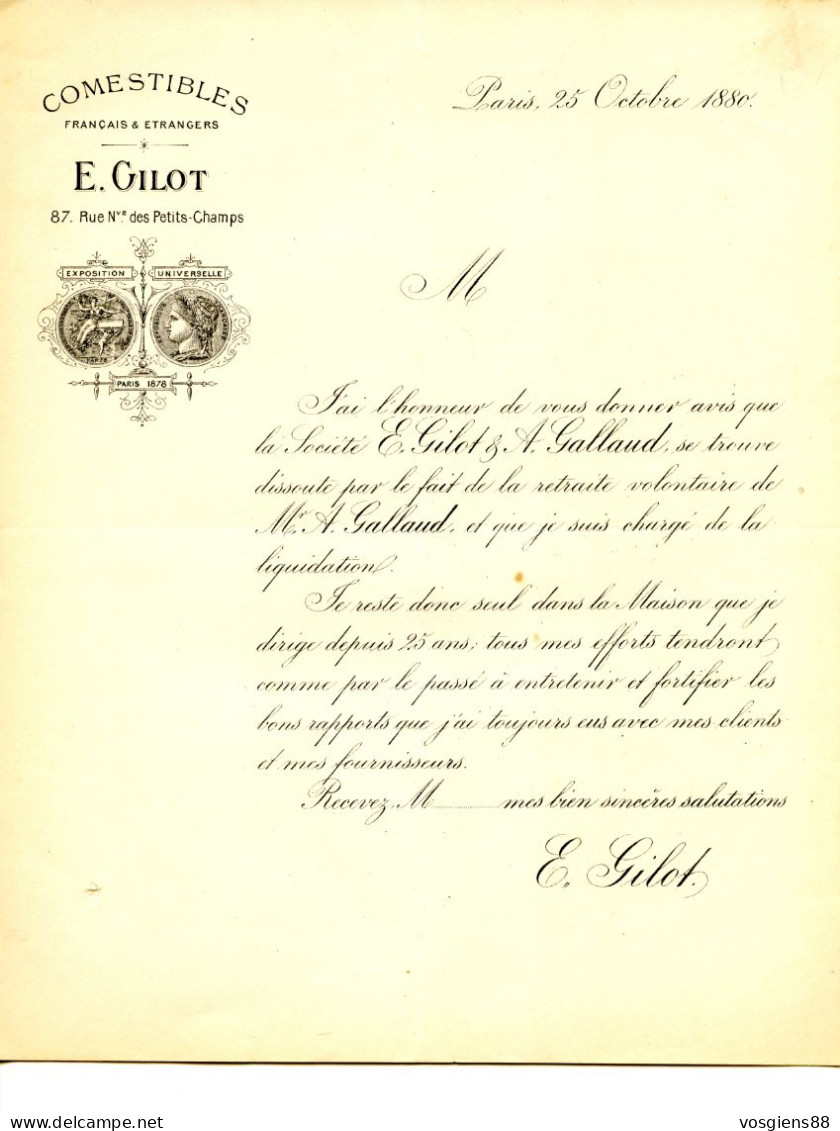 COMESTIBLES
FRANÇAIS & ETRANGERS
E. GILOT
87. Rue Nve. des Petits-Champs
EXPOSITION UNIVERSELLE
PARIS 1878
Paris, 25 Octobre 1880.
M
J'ai l'honneur de vous donner avis que
la Société E. Gilot & A. Gallaud, se trouve
dissoute par le fait de la retraite volontaire de
Mr. A. Gallaud, et que je suis chargé de la
liquidation.
Je reste donc seul dans la Maison que je
dirige depuis 25 ans; tous mes efforts tendront
comme par le passé à entretenir et fortifier les
bons rapports que j'ai toujours eus avec mes clients
et mes fournisseurs.
Recevez, M mes bien sincères salutations
E. Gilot.
vosgiens88